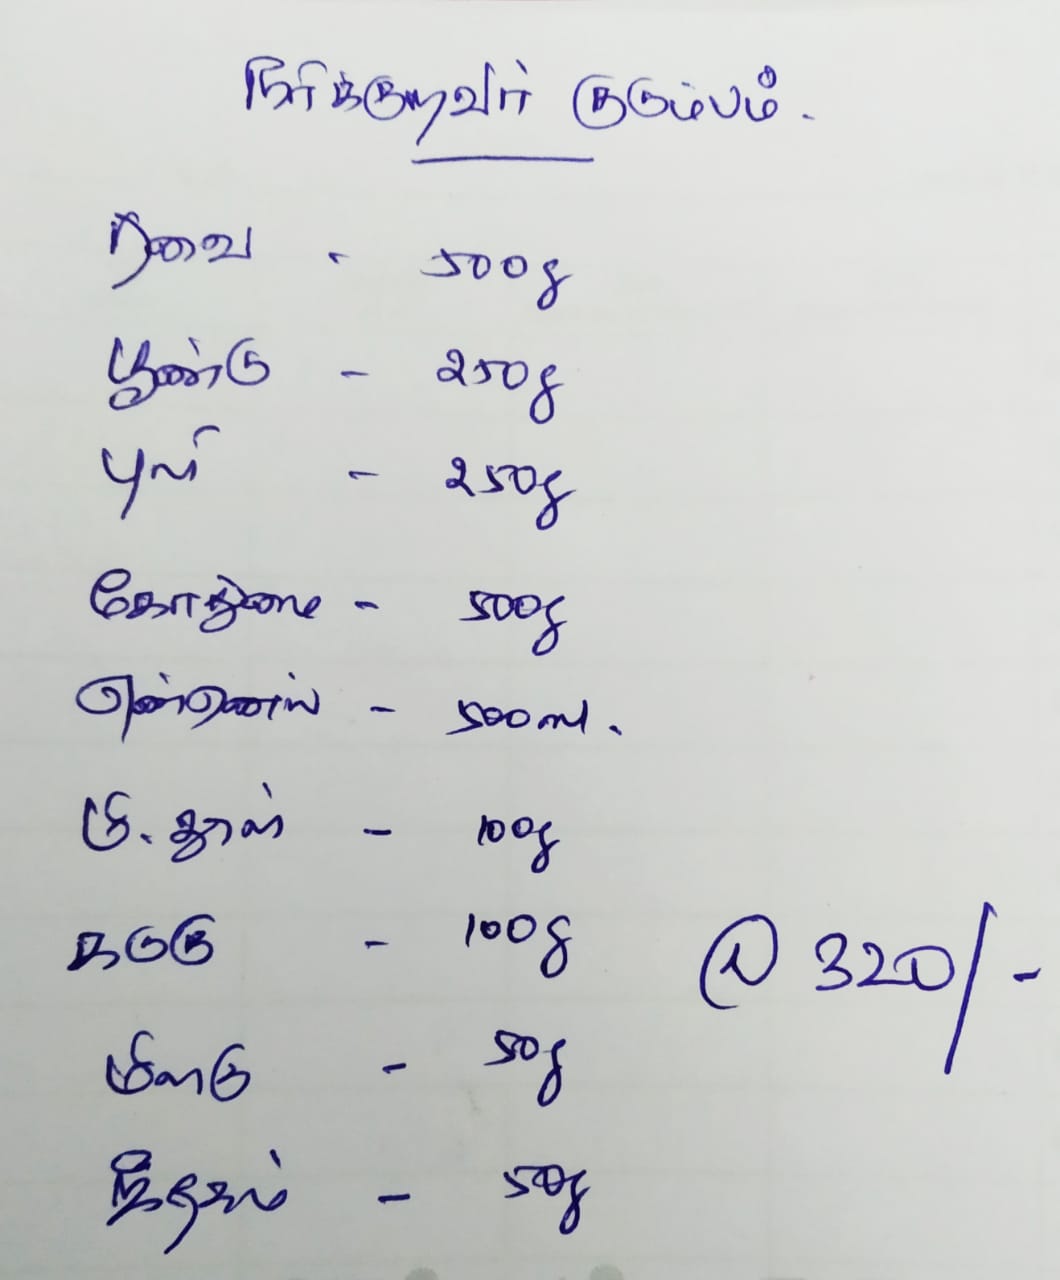 நரிக்குறவர் குடும்பம்.
ரவை - 500g
பூண்டு - 250g
புளி - 250g
கோதுமை - 500g
எண்ணெய் - 500ml.
மி. தூள் - 100g
கடுகு - 100g
@ 320/-
மிளகு - 50g
சீரகம் - 50g